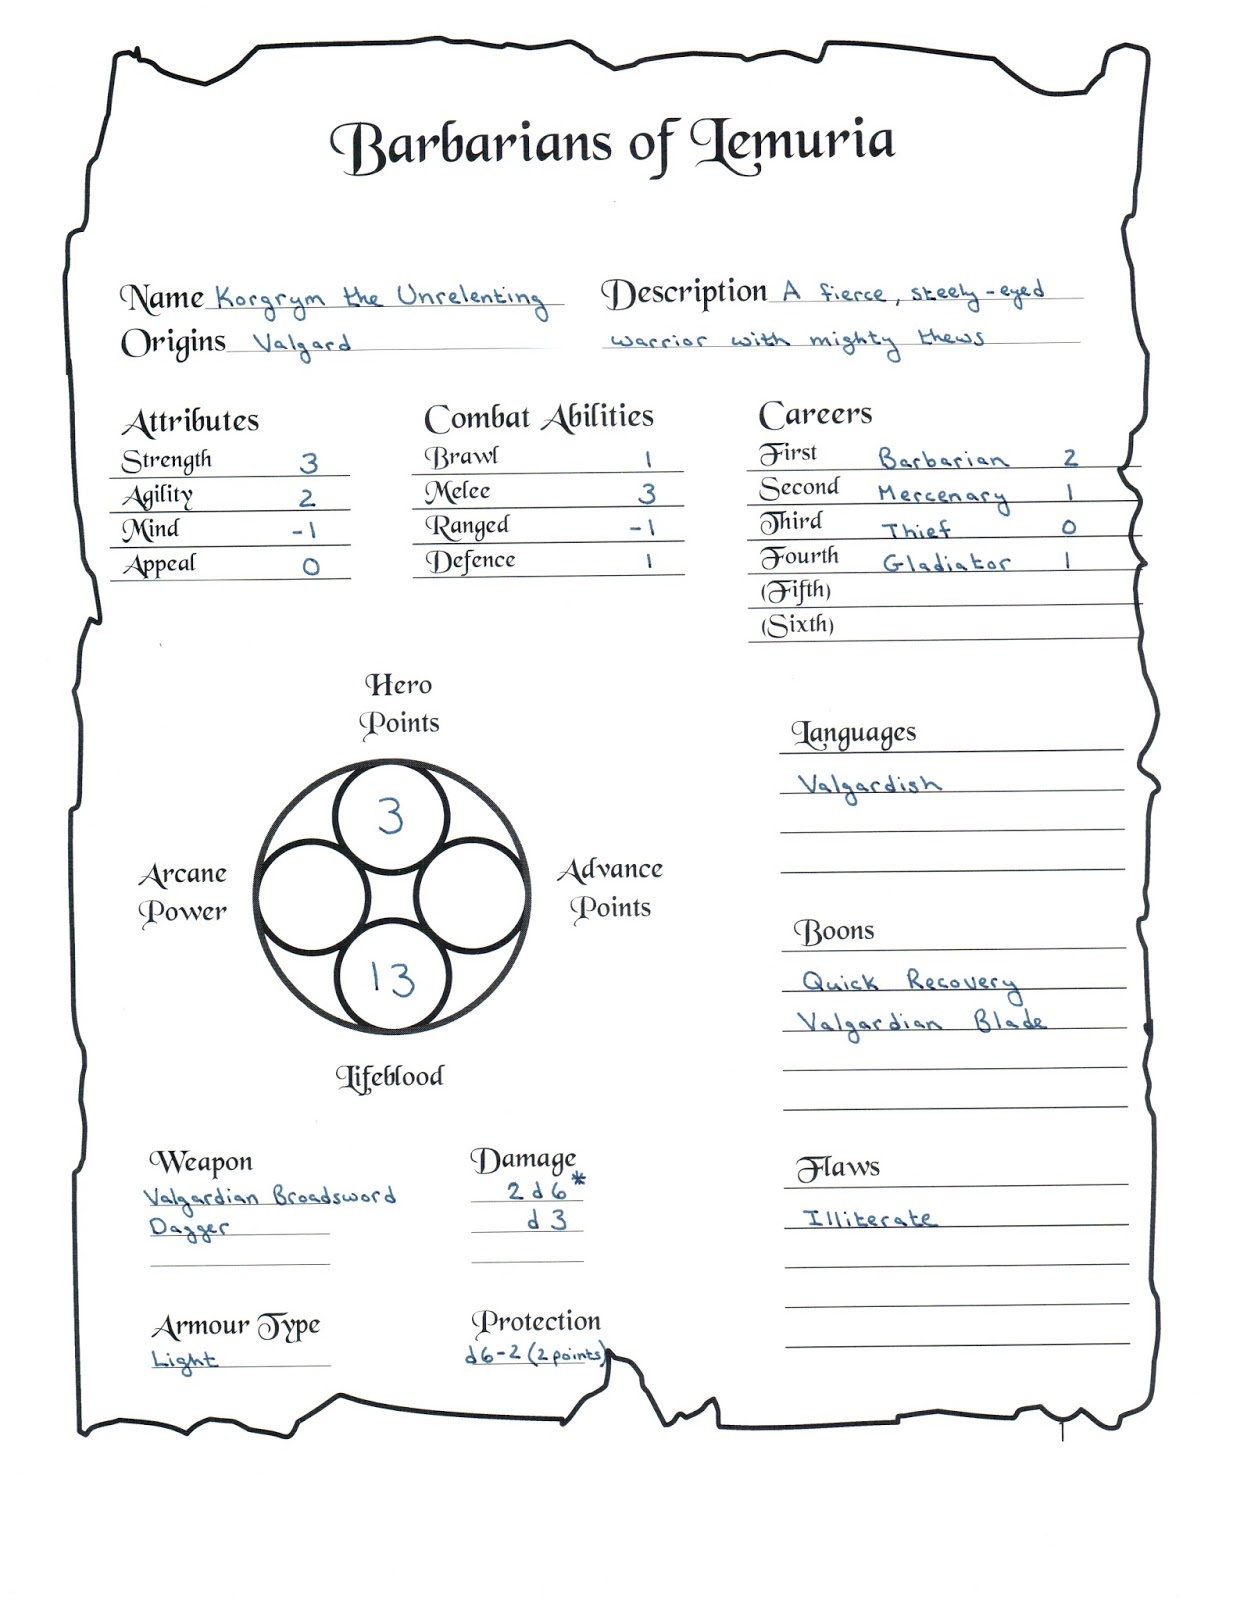 Barbarians of Lemuria
Name Korgrym the Unrelenting
Description A fierce, steely-eyed
warrior with mighty thews
Origins Valgard
Attributes
Strength 3
Agility 2
Mind -1
Appeal 0
Combat Abilities
Brawl 1
Melee 3
Ranged -1
Defence 1
Careers
First Barbarian 2
Second Mercenary 1
Third Thief 0
Fourth Gladiator 1
(Fifth)
(Sixth)
Hero
Points
3
Arcane
Power
Advance
Points
13
Lifeblood
Languages
Valgardish
Boons
Quick Recovery
Valgardian Blade
Weapon Damage
Valgardian Broadsword 2d6*
Dagger d3
Flaws
Illiterate
Armour Type Protection
Light d6-2 (2 points)